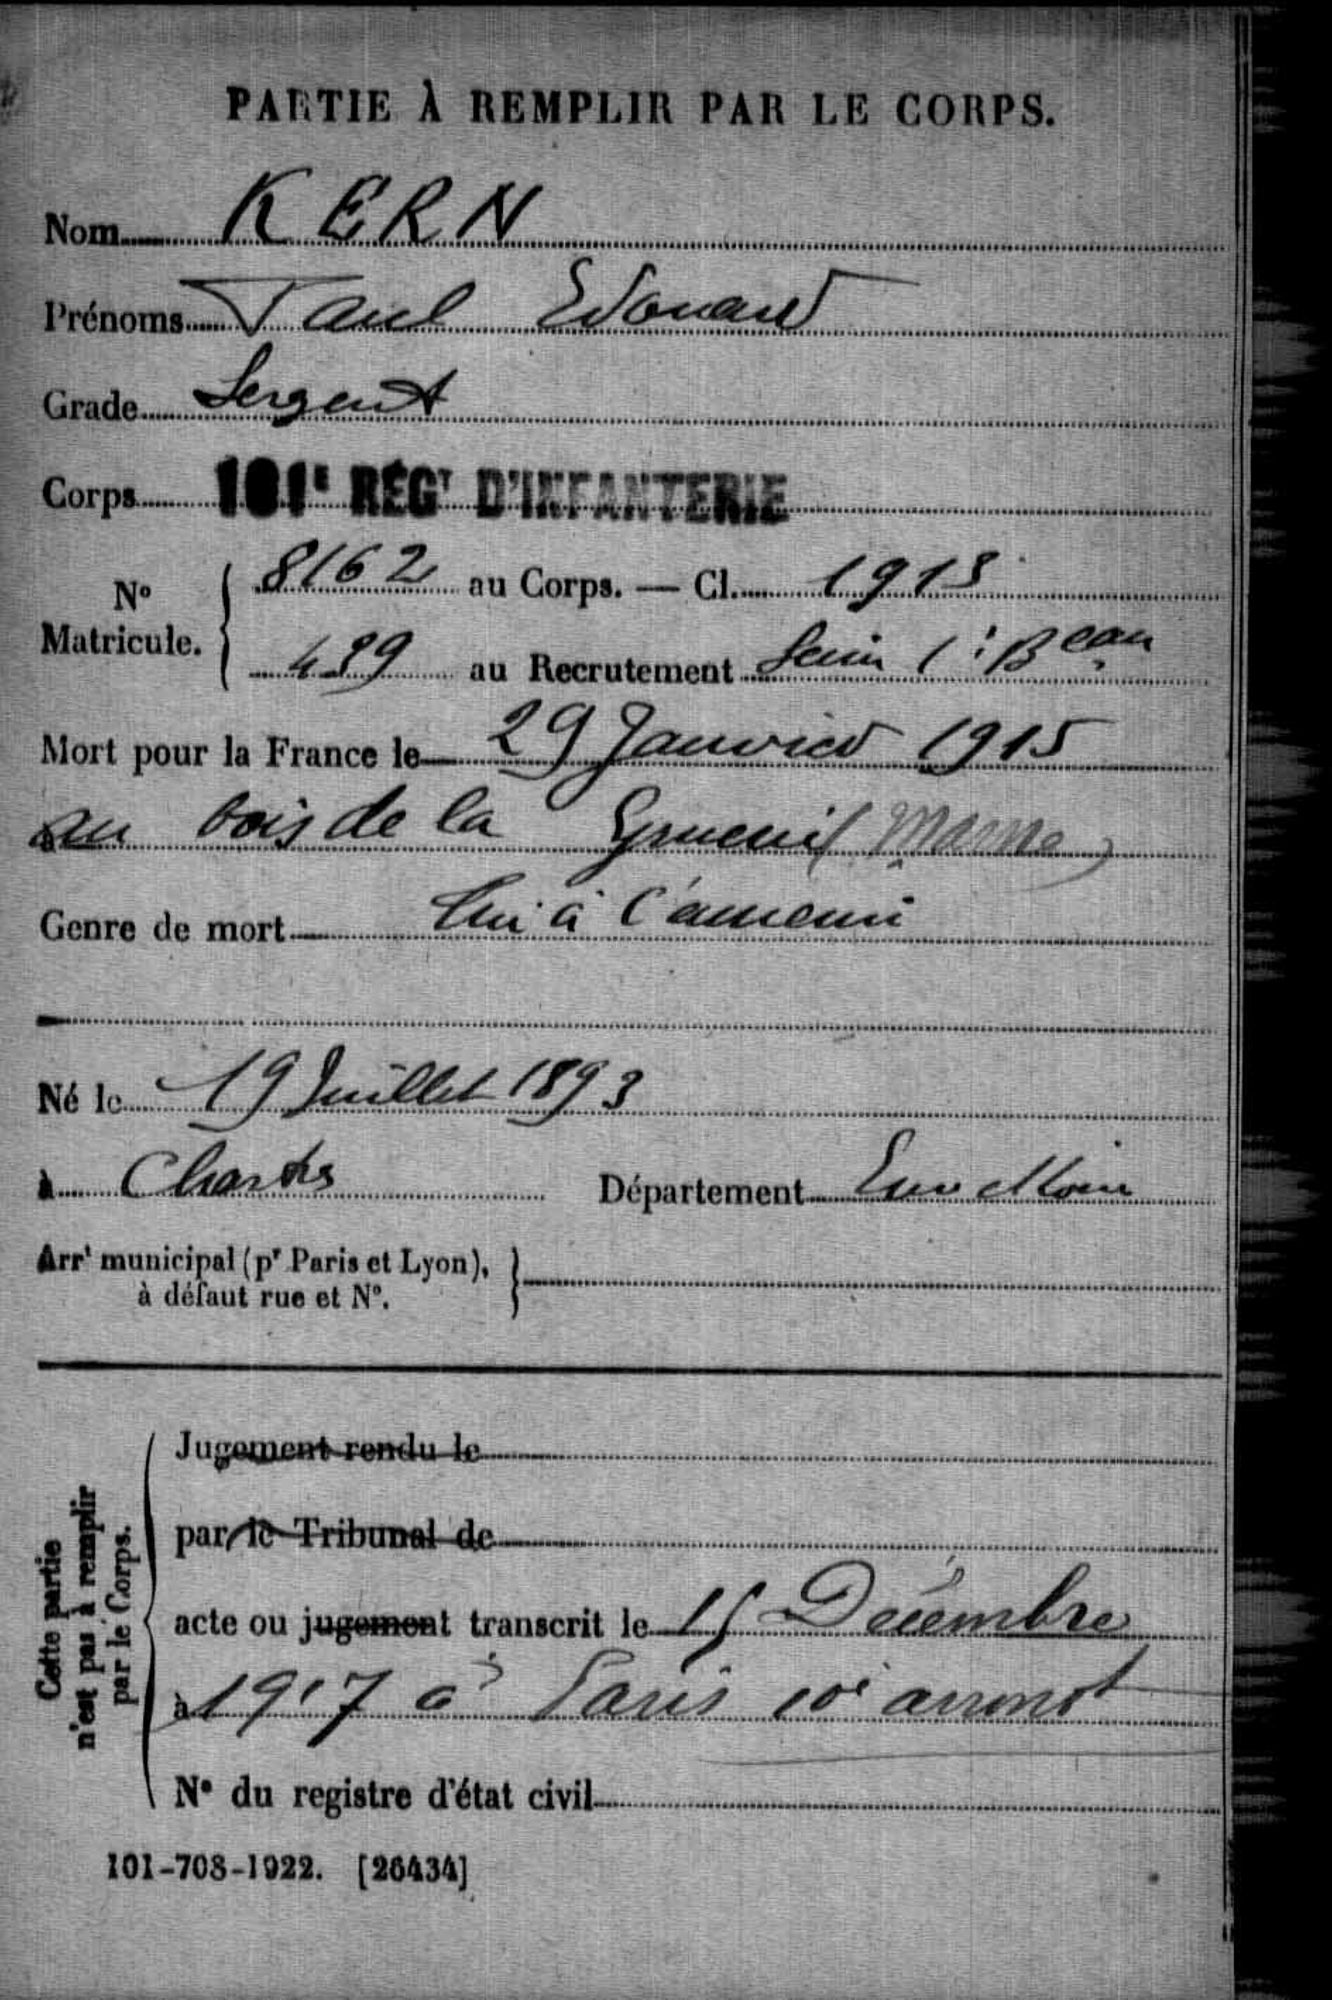 PARTIE À REMPLIR PAR LE CORPS.
Nom KERN
Prénoms Paul Edouard
Grade Sergent
Corps 101E RÉGT D'INFANTERIE
No Matricule. 8162 au Corps. — Cl. 1913
489 au Recrutement Seine 1er Beau
Mort pour la France le 29 Janvier 1915
au bois de la Gruerie (Marne)
Genre de mort Tué à l'ennemi
Né le 19 Juillet 1893
à Chartres Département Eure et Loir
Arrt municipal (pr Paris et Lyon),
à défaut rue et No.
Cette partie
n'est pas à remplir
par le Corps.
Jugement rendu le
par le Tribunal de
acte ou jugement transcrit le 15 Décembre
à 1917 à Paris 10e arrondt
No du registre d'état civil
101-708-1922. [26434]